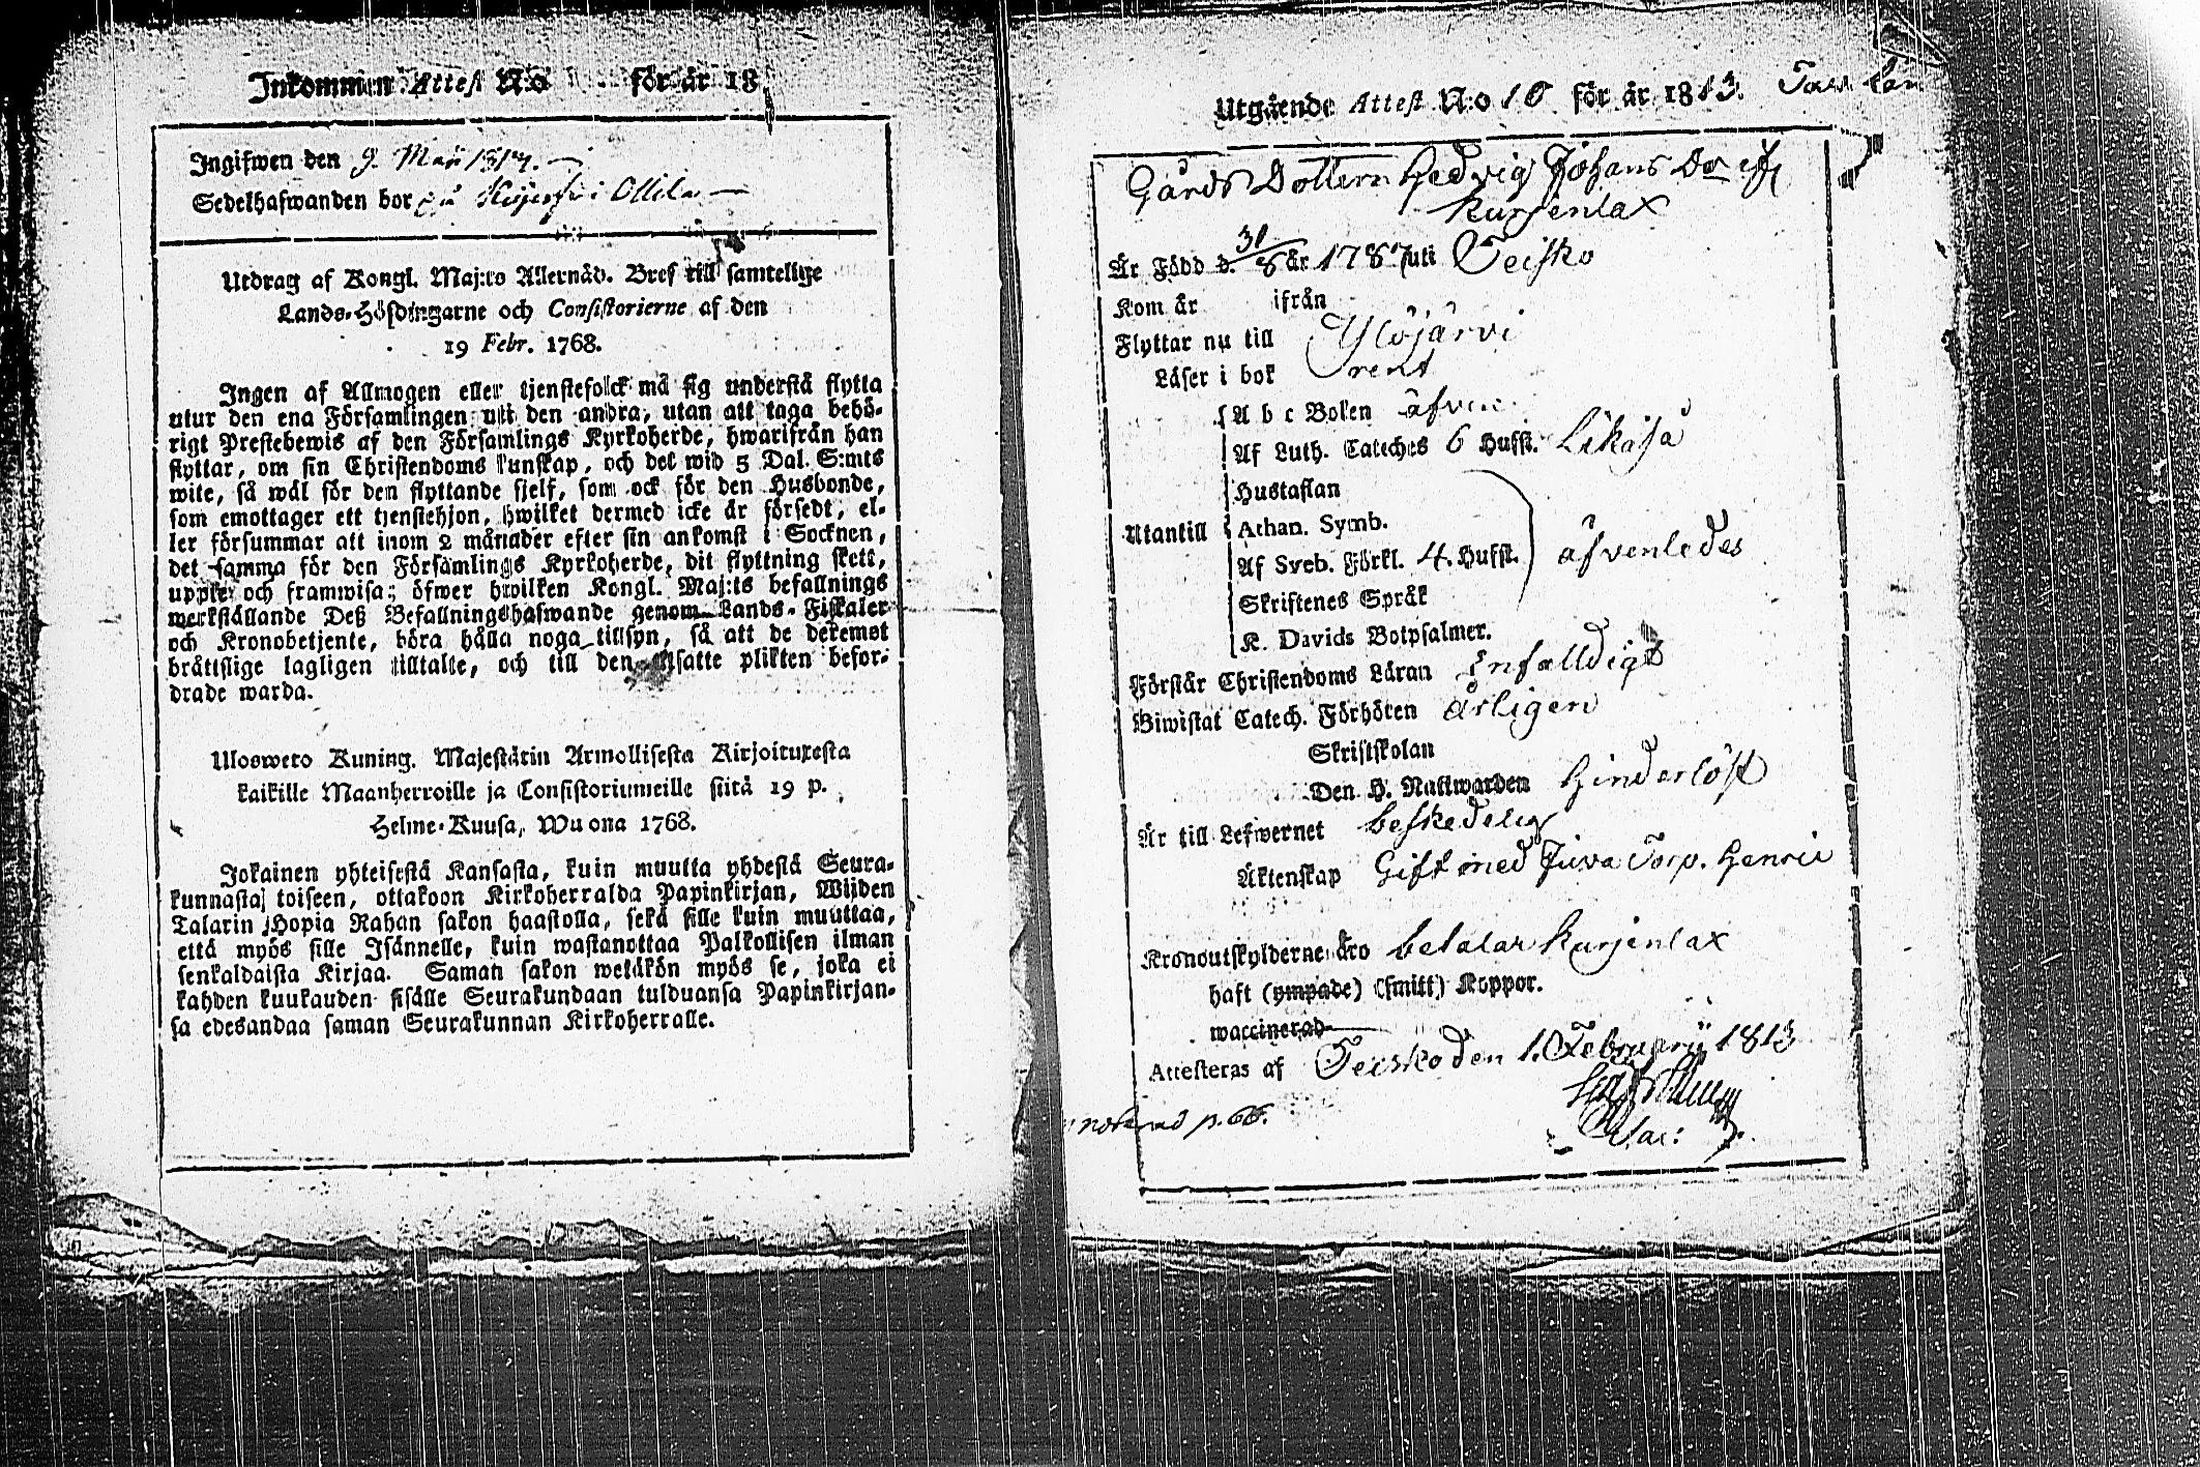 Inkommen Attest N:o för år 18
Ingifwen den 9. Maji
Sedelhafwanden bor på i Ollila
Utdrag af Kongl. Maj:ts Allernåd. Bref till samtelige
Lands-Höfdingarne och Consistorierne af den
19 Febr. 1768.
Ingen af Allmogen eller tjenstefolck må sig understå flytta
utur den ena Församlingen uti den andra, utan att taga behö-
rigt Prestebewis af den Församlings Kyrkoherde, hwarifrån han
flyttar, om sin Christendoms kunskap, och det wid 5 Dal. S:mts
wite, så wäl för den flyttande sjelf, som ock för den Husbonde,
som emottager ett tjenstehjon, hwilket dermed icke är försedt, el-
ler försummar att inom 2 månader efter sin ankomst i Socknen,
det samma för den Församlings Kyrkoherde, dit flyttning skett,
uppte och framwisa; öfwer hwilken Kongl. Maj:ts befallnings
werkställande Deß Befallningshafwande genom Lands-Fiskaler
och Kronobetjente, böra hålla noga tillsyn, så att de deremot
bråttslige lagligen tilltalte, och till den utsatte plikten befor-
drade warda.
Uloswето Kuning. Majestätin Armollisesta Kirjoituxesta
kaikille Maanherroille ja Consistoriumeille siitä 19 p.
Helme-Kuusa, Wuonа 1768.
Jokainen yhteisestä Kansasta, kuin muutta yhdestä Seura-
kunnasta toiseen, ottakoon Kirkoherralda Papinkirjan, Wijden
Talarin Hopia Rahan sakon haastolla, sekä sille kuin muuttaa,
että myös sille Isännelle, kuin wastanottaa Palkollisen ilman
senkaldaista Kirjaa. Saman sakon wetäkön myös se, joka ei
kahden kuukauden sisälle Seurakundaan tulduansa Papinkirjan-
sa edesandaa saman Seurakunnan Kirkoherralle.
Utgående Attest N:o 10 för år 1813.
Gårds Dottern Hedvig Johans Dr
Kurjenlax
Är Född d. 31/8 år 1787 uti Teisko
Kom år ifrån
Flyttar nu till Ylöjärvi
Läser i bok rent
A b c Boken äfven
Af Luth. Cateches 6 Hufst. Likaså
Hustaflan
Utantill Athan. Symb.
Af Sveb. Förkl. 4. Hufst. äfvenledes
Skriftenes Språk
K. Davids Botpsalmer.
Förstår Christendoms Läran enfalldigt
Biwistat Catech. Förhören årligen
Skriftskolan
Den H. Nattwarden Hinderlöst
Är till Lefwernet beskedelig
Äktenskap Gift med Juva Torp. Henric
Kronoutskylderne äro betalar Kurjenlax
haft (ympade) (smitt) Koppor.
waccinerad
Attesteras af Teisko den 1. Februarii 1813
noterad p. 66.